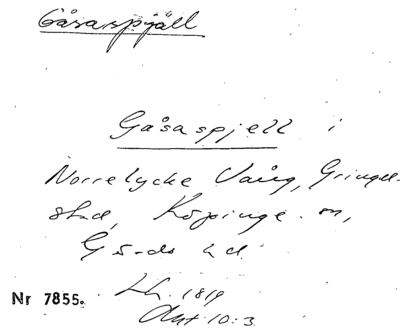 Gåsaspjäll
Gåsaspjell i
Norrelycke Vång, Gringel-
stad, Köpinge sn,
Gärds hd.
Nr 7855. Lh. 1819
Akt 10:3.